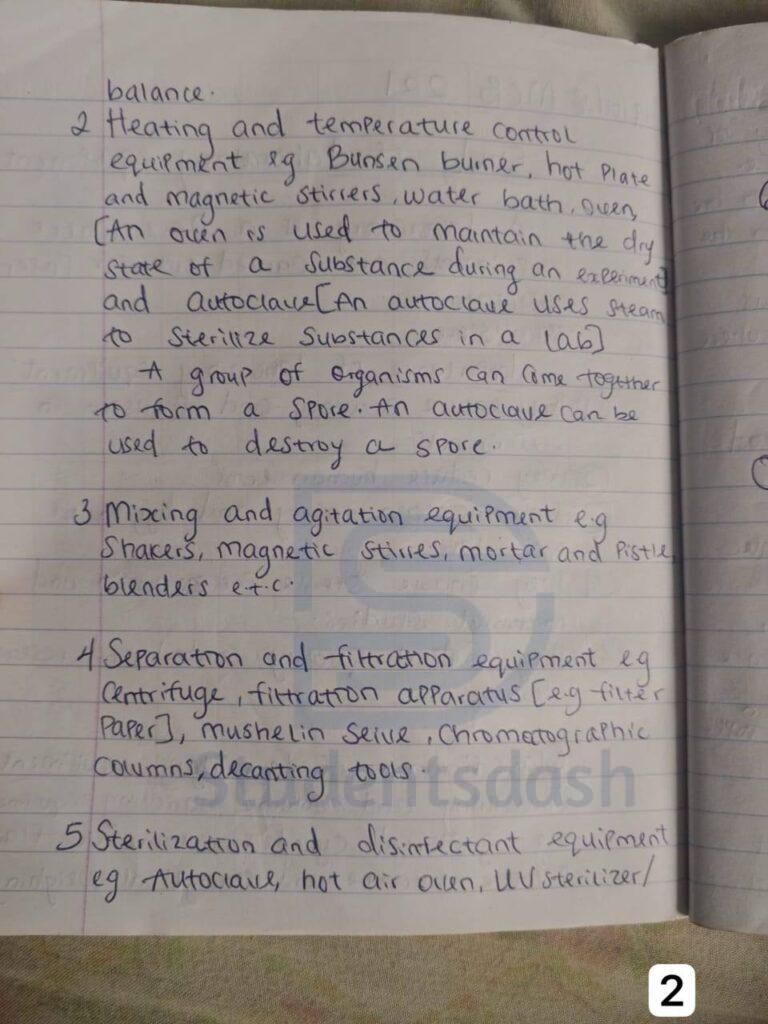 balance.
2 Heating and temperature control
equipment eg Bunsen burner, hot Plate
and magnetic stirrers, water bath, oven,
[An oven is used to maintain the dry
state of a substance during an experiment]
and autoclave[An autoclave uses steam
to sterilize substances in a lab]
A group of organisms can come together
to form a spore. An autoclave can be
used to destroy a spore.
3 Mixing and agitation equipment e.g
Shakers, magnetic stirres, mortar and Pistle,
blenders e.t.c.
4 Separation and filtration equipment eg
Centrifuge, filtration apparatus [e.g filter
Paper], mushelin Seive, Chromatographic
columns, decanting tools.
Studentsdash
5 Sterilization and disinfectant equipment
eg Autoclave, hot air oven, UV sterilizer/
2